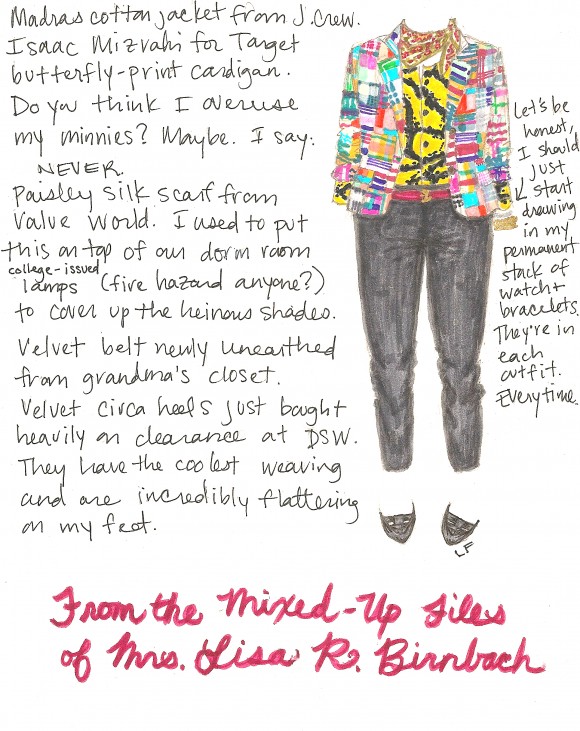 Madras cotton jacket from J. Crew.
Isaac Mizrahi for Target
butterfly-print cardigan.
Do you think I overuse
my minnies? Maybe. I say:
NEVER.
Paisley silk scarf from
Value World. I used to put
this on top of our dorm room
college-issued
lamps (fire hazard anyone?)
to cover up the heinous shades.
Velvet belt newly unearthed
from grandma's closet.
Velvet circa heels just bought
heavily on clearance at DSW.
They have the coolest weaving
and are incredibly flattering
on my feet.
Let's be
honest,
I should
just
start
drawing
in my
permanent
stack of
watch +
bracelets.
They're in
each
outfit.
Everytime.
LF
From the Mixed-Up Files
of Mrs. Lisa R. Birnbach